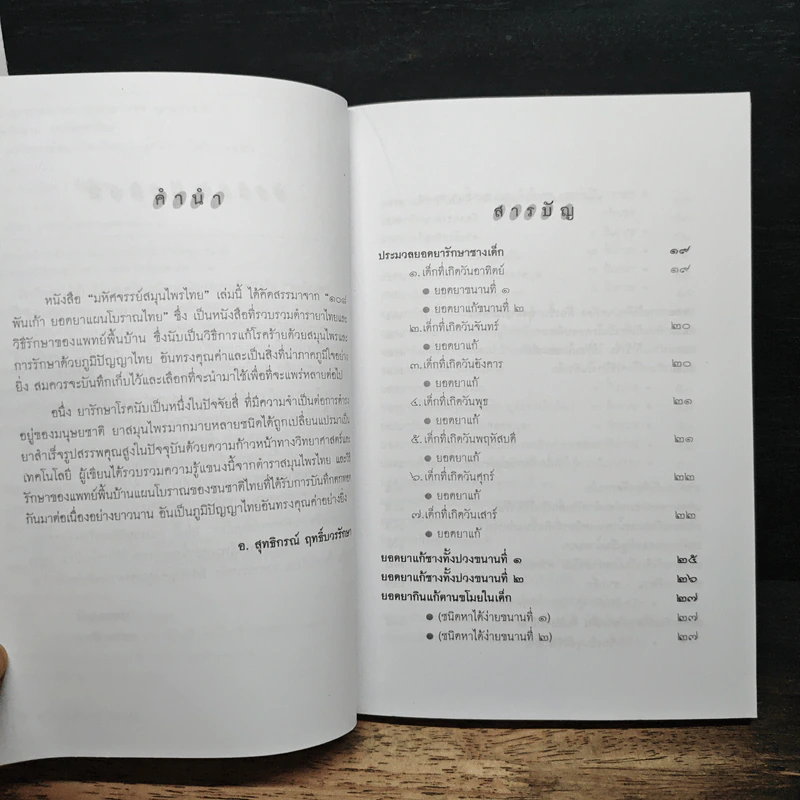 คำนำ
หนังสือ "มหัศจรรย์สมุนไพรไทย" เล่มนี้ ได้คัดสรรมาจาก "๑๐๘
พันเก้า ยอดยาแผนโบราณไทย" ซึ่ง เป็นหนังสือที่รวบรวมตำรายาไทยและ
วิธีรักษาของแพทย์พื้นบ้าน ซึ่งนับเป็นวิธีการแก้โรคร้ายด้วยสมุนไพรและ
การรักษาด้วยภูมิปัญญาไทย อันทรงคุณค่าและเป็นสิ่งที่น่าภาคภูมิใจอย่าง
ยิ่ง สมควรจะบันทึกเก็บไว้และเลือกที่จะนำมาใช้เพื่อที่จะแพร่หลายต่อไป
อนึ่ง ยารักษาโรคนับเป็นหนึ่งในปัจจัยสี่ ที่มีความจำเป็นต่อการดำรง
อยู่ของมนุษยชาติ ยาสมุนไพรมากมายหลายชนิดได้ถูกเปลี่ยนแปรมาเป็น
ยาสำเร็จรูปสรรพคุณสูงในปัจจุบันด้วยความก้าวหน้าทางวิทยาศาสตร์และ
เทคโนโลยี ผู้เขียนได้รวบรวมความรู้แขนงนี้จากตำราสมุนไพรไทย และวิธี
รักษาของแพทย์พื้นบ้านแผนโบราณของชนชาติไทยที่ได้รับการบันทึกตกทอด
กันมาต่อเนื่องอย่างยาวนาน อันเป็นภูมิปัญญาไทยอันทรงคุณค่าอย่างยิ่ง
อ. สุทธิกรณ์ ฤทธิ์บวรรักษา
สารบัญ
ประมวลยอดยารักษาซางเด็ก ๑๙
๑.เด็กที่เกิดวันอาทิตย์ ๑๙
● ยอดยาขนานที่ ๑
● ยอดยาแก้ขนานที่ ๒
๒.เด็กที่เกิดวันจันทร์ ๒๐
● ยอดยาแก้
๓.เด็กที่เกิดวันอังคาร ๒๐
● ยอดยาแก้
๔.เด็กที่เกิดวันพุธ ๒๑
● ยอดยาแก้
๕.เด็กที่เกิดวันพฤหัสบดี ๒๑
● ยอดยาแก้
๖.เด็กที่เกิดวันศุกร์ ๒๒
● ยอดยาแก้
๗.เด็กที่เกิดวันเสาร์ ๒๒
● ยอดยาแก้
ยอดยาแก้ซางทั้งปวงขนานที่ ๑ ๒๕
ยอดยาแก้ซางทั้งปวงขนานที่ ๒ ๒๖
ยอดยากินแก้ตานขโมยในเด็ก ๒๗
● (ชนิดหาได้ง่ายขนานที่ ๑) ๒๗
● (ชนิดหาได้ง่ายขนานที่ ๒) ๒๗